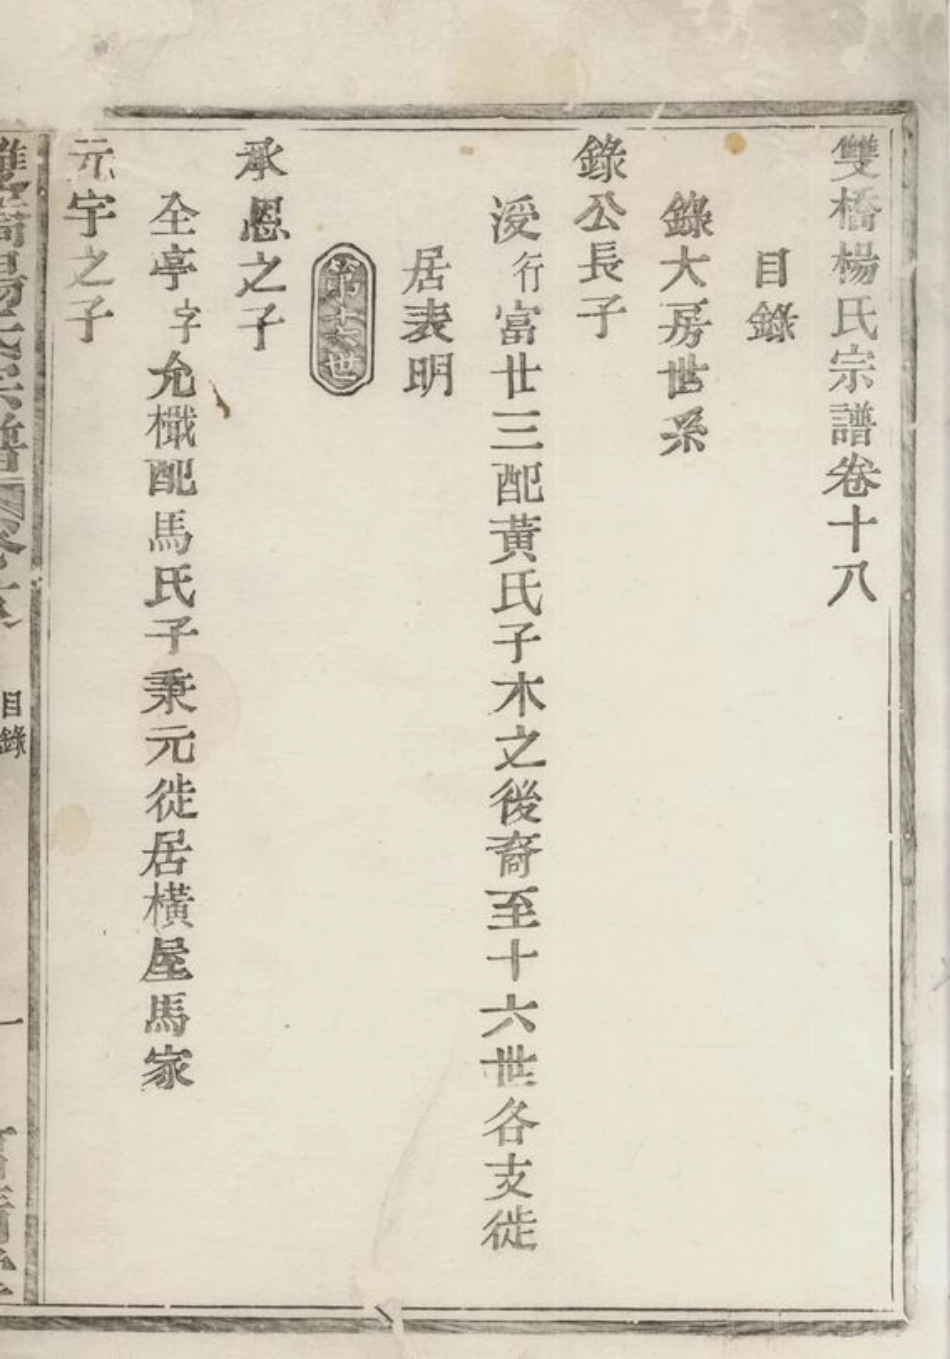 雙橋楊氏宗譜卷十八
目錄
錄大房世系
錄公長子
浸行富廿三配黃氏子木之後裔至十六世各支徙
居表明
第十七世
承恩之子
全亭字允檝配馬氏子秉元徙居橫屋馬家
元宇之子
雙橋楊氏宗譜卷十八 目錄 一